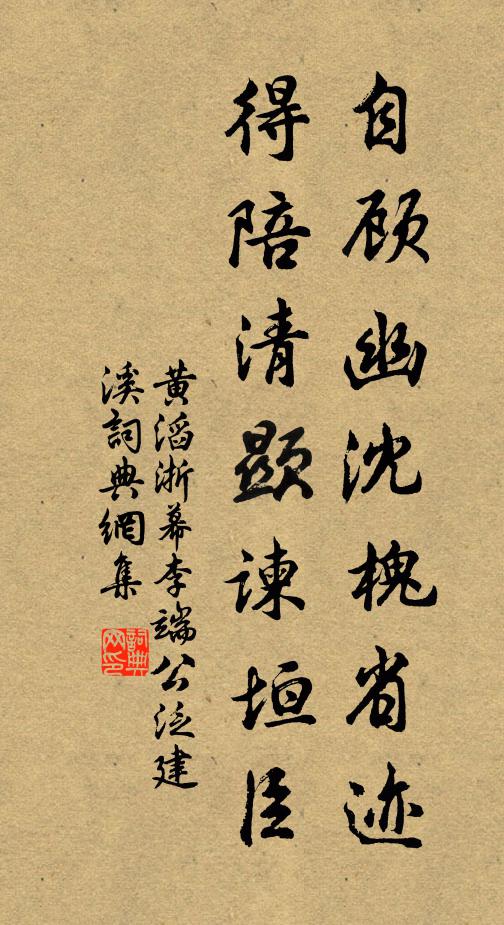 自顾幽沈槐省迹
得陪清顯谏垣臣
黄滔浙幕李端公泛建
溪詞典網集
詞典
网印